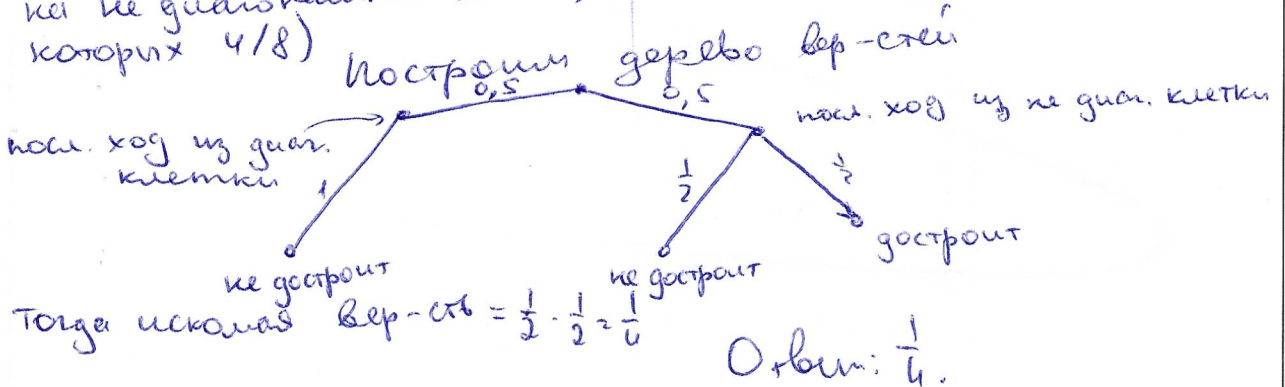 ка не диагональ
которых 4/8)
Построим дерево вер-стей
0,5 0,5
посл. ход из не диаг. клетки
посл. ход из диаг.
клетки
1
1/2
1/2
достроит
не достроит
не достроит
Тогда искомая вер-сть = 1/2 · 1/2 = 1/4
Ответ: 1/4.